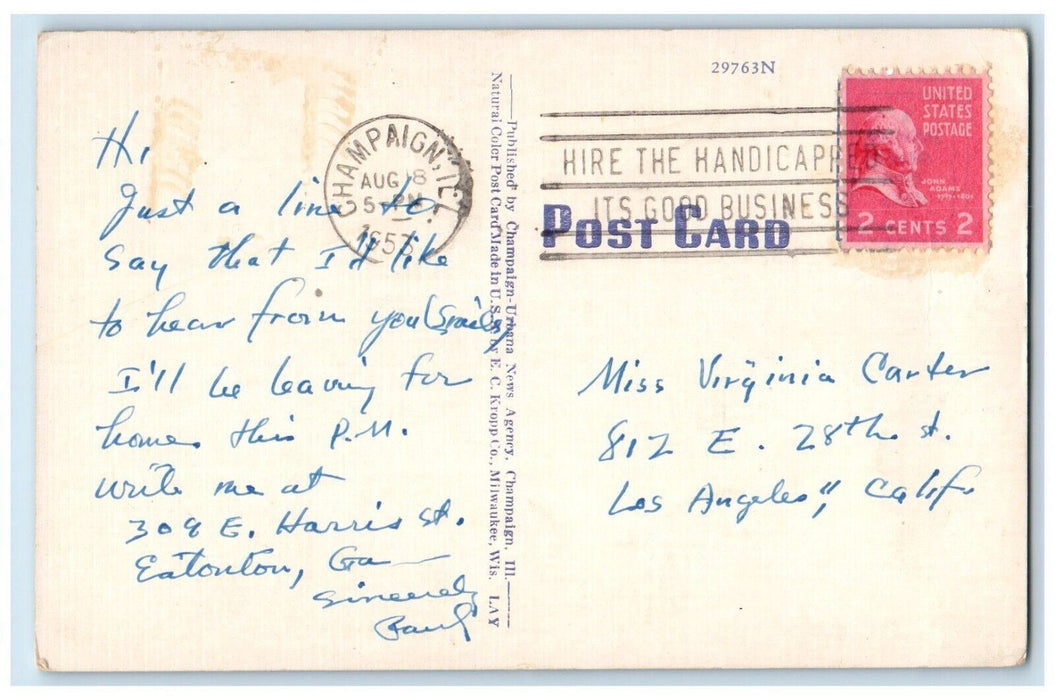 29763N
UNITED
STATES
POSTAGE
JOHN
ADAMS
2 CENTS 2
CHAMPAIGN, ILL.
AUG 18
5 PM
1957
HIRE THE HANDICAPPED
ITS GOOD BUSINESS
POST CARD
Hi,
Just a line to
say that I'd like
to hear from you
I'll be leaving for
home this P.M.
write me at
309 E. Harris St.
Eatonton, Ga
Sincerely
Paul
Published by Champaign-Urbana News Agency, Champaign, Ill.
Natural Color Post Card Made in U.S.A. by E. C. Kropp Co., Milwaukee, Wis. LAY
Miss Virginia Carter
812 E. 28th st.
Los Angeles,, Calif